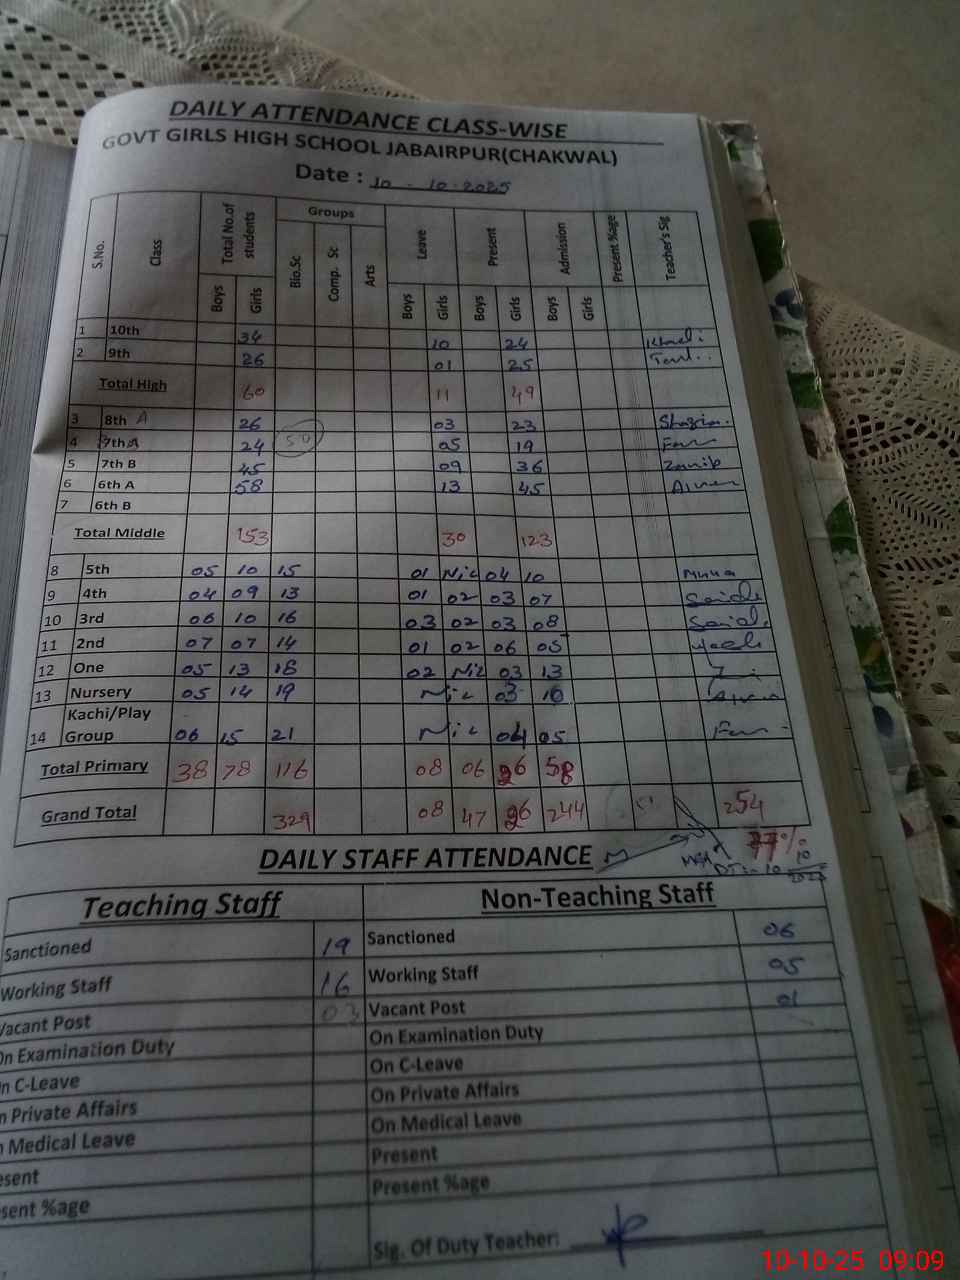 DAILY ATTENDANCE CLASS-WISE
GOVT GIRLS HIGH SCHOOL JABAIRPUR(CHAKWAL)
Date : 10 - 10-2025
S.No. Class Total No.of students Groups Leave Present Admission Present %age Teacher's Sig
Boys Girls Bio.Sc Comp. Sc Arts Boys Girls Boys Girls Boys Girls
1 10th 34 10 24
2 9th 26 01 25
Total High 60 11 49
3 8th A 26 03 23 Shazia.
4 7th A 24 50 05 19
5 7th B 45 09 36 Zanib
6 6th A 58 13 45
7 6th B
Total Middle 153 30 123
8 5th 05 10 15 01 Nil 04 10
9 4th 04 09 13 01 02 03 07
10 3rd 06 10 16 03 02 03 08
11 2nd 07 07 14 01 02 06 05
12 One 05 13 18 02 Nil 03 13
13 Nursery 05 14 19 Nil 03 10
Kachi/Play
14 Group 06 15 21 Nil 04 05
Total Primary 38 78 116 08 06 26 58
Grand Total 329 08 47 26 244 254
77%
DAILY STAFF ATTENDANCE
Teaching Staff Non-Teaching Staff
Sanctioned 19 Sanctioned 06
Working Staff 16 Working Staff 05
Vacant Post 03 Vacant Post 01
On Examination Duty On Examination Duty
On C-Leave On C-Leave
On Private Affairs On Private Affairs
On Medical Leave On Medical Leave
esent Present
esent %age Present %age
Sig. Of Duty Teacher:
10-10-25 09:09